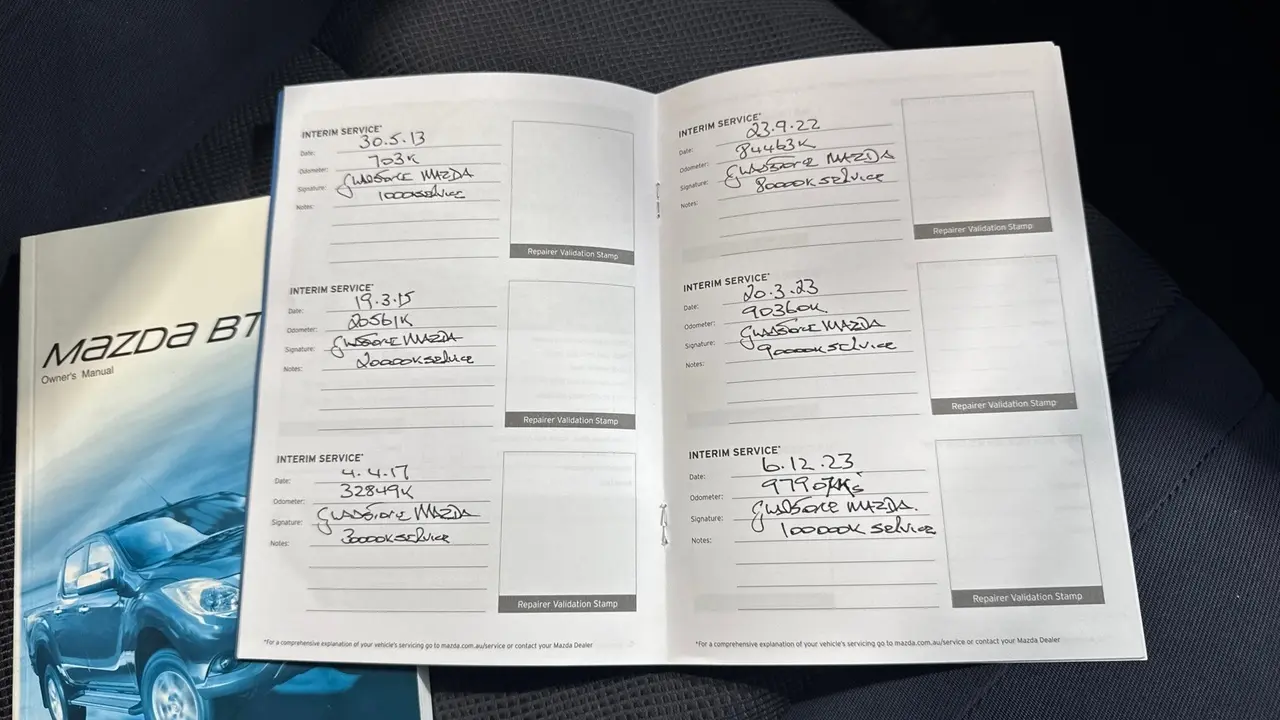 MAZDA BT
Owner's Manual
INTERIM SERVICE*
Date: 30.5.13
Odometer: 703K
Signature: Gladstone MAZDA
Notes: 1000K service
Repairer Validation Stamp
INTERIM SERVICE*
Date: 19.3.15
Odometer: 20561K
Signature: Gladstone MAZDA
Notes: 20000K service
Repairer Validation Stamp
INTERIM SERVICE*
Date: 4.4.17
Odometer: 32849K
Signature: Gladstone MAZDA
Notes: 30000K service
Repairer Validation Stamp
*For a comprehensive explanation of your vehicle's servicing go to mazda.com.au/service or contact your Mazda Dealer
INTERIM SERVICE*
Date: 23.9.22
Odometer: 84463K
Signature: Gladstone MAZDA
Notes: 80000K service
Repairer Validation Stamp
INTERIM SERVICE*
Date: 20.3.23
Odometer: 90360K
Signature: Gladstone MAZDA
Notes: 90000K service
Repairer Validation Stamp
INTERIM SERVICE*
Date: 6.12.23
Odometer:
Signature: Gladstone MAZDA.
Notes: 100000K service
Repairer Validation Stamp
*For a comprehensive explanation of your vehicle's servicing go to mazda.com.au/service or contact your Mazda Dealer